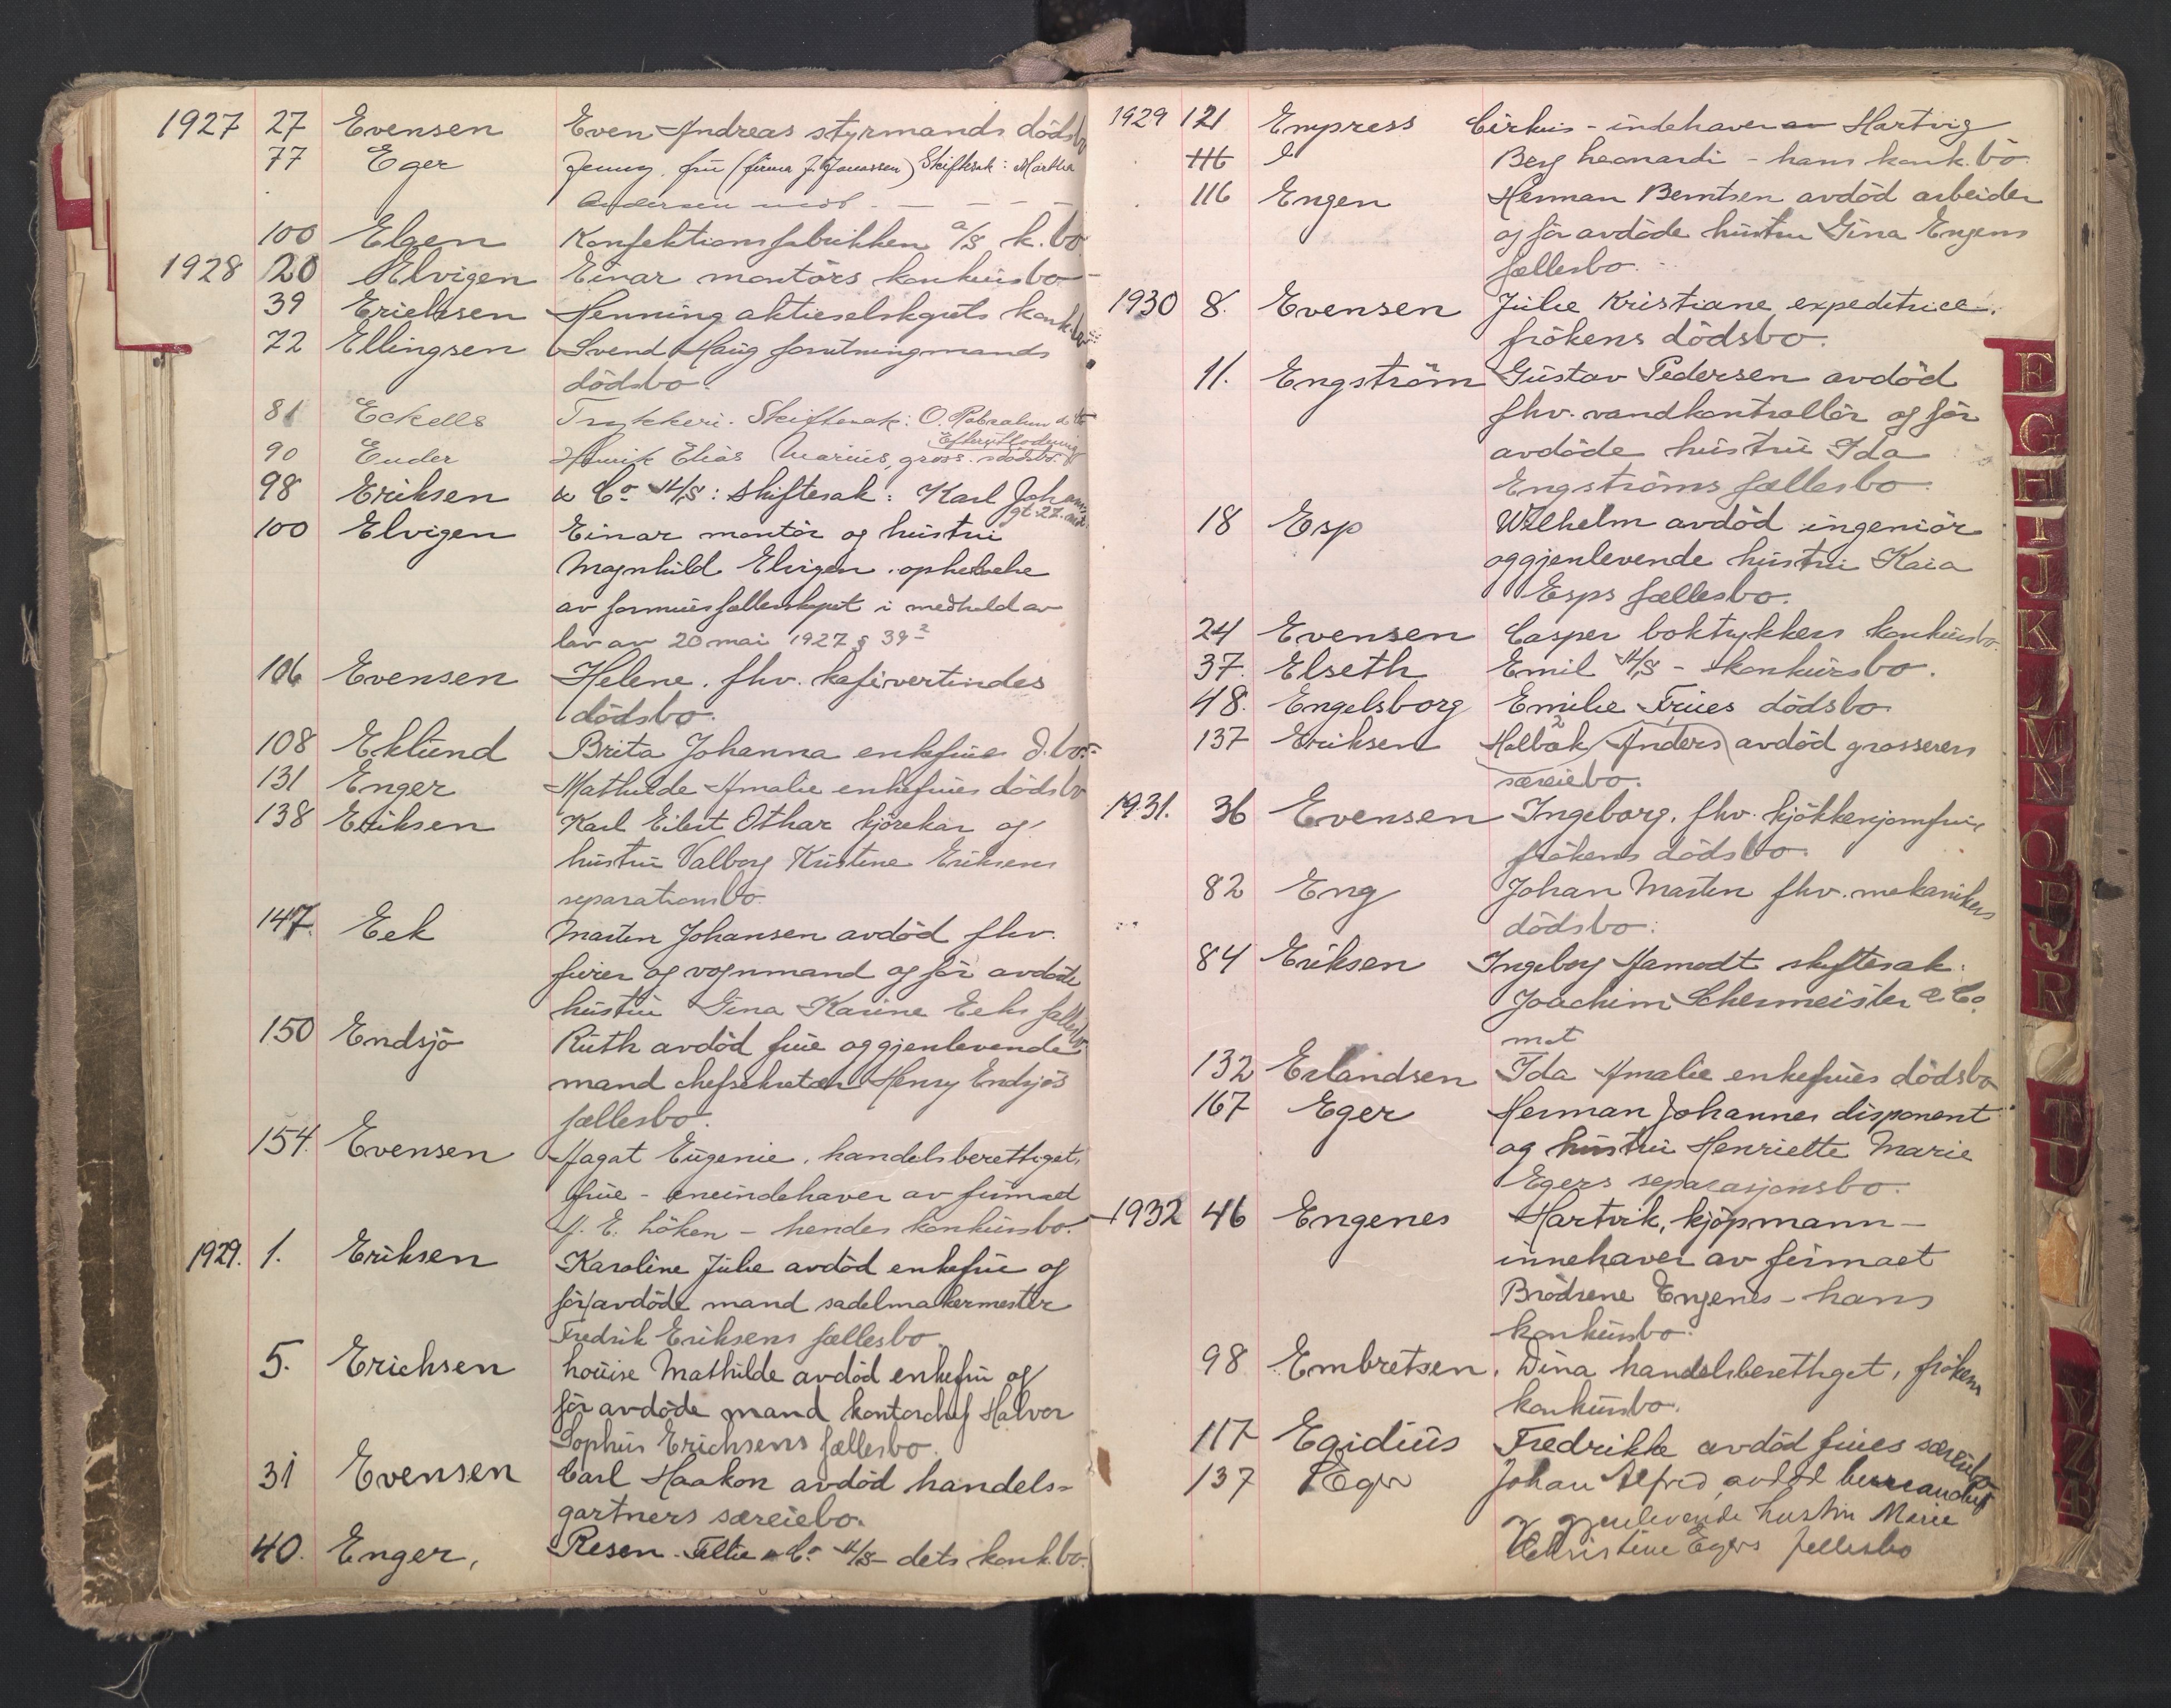 1927 27 Evensen Even Andreas styrmands dödsbo
77 Eger Jenny, frü (firma J. Janassen) Skiftesak: Martha
Andersen mot — — — —
100 Elgen Konfektionsfabrikken a/s k.bo
1928 20 Elvigen Einar montörs konkürsbo
39 Erichsen Henning aktieselskaps konk.bo
72 Ellingsen Svend Haüg forretningsmands
dödsbo.
81 Eckells Trykkeri. Skiftesak: O.
90 Ender Henrik Elias Marius, gross. dödsbo.
98 Eriksen & Co A/S: skiftesak: Karl
100 Elvigen Einar montör og hüstrü
Magnhild Elvigen. ophevelse
av formüesfællesskapet i medhold av
lov av 20 mai 1927 § 39²
106 Evensen Helene, fhv. kafevertindes
dödsbo.
108 Eklünd Brita Johanna enkefrües d.bo.
131 Enger Mathilde Amalie enkefrües dödsbo
138 Eriksen Karl Eilert Othar kjörekar og
hüstrü Valborg Kristine Eriksens
separationsbo.
147. Eek Martin Johansen avdöd fhv.
furer og vognmand og för avdöde
hüstrü Gina Karine Eeks fællesbo
150 Endsjö Rüth avdöd früe og gjenlevende
mand chefsekretær Henry Endsjös
fællesbo.
154. Evensen Aagat Eügenie, handelsberettiget,
früe - eneindehaver av firmaet
A. E. Löken - hendes konkürsbo.
1929. 1. Eriksen Karoline Jülie avdöd enkefrü og
för avdöde mand sadelmakermester
Fredrik Eriksens fællesbo.
5. Erichsen Loüise Mathilde avdöd enkefrü og
för avdöde mand kontorchef Halvor
Sophüs Erichsens fællesbo.
31 Evensen Carl Haakon avdöd handels-
gartners særeiebo.
40. Enger, Resen. & Co A/S dets konk.bo.
1929 121 Empress Cirkus - indehaveren Hartvig
116 E Berg Leonardi - hans konk.bo.
116 Engen Herman Berntsen avdöd arbeider
og för avdöde hüstrü Gina Engens
fællesbo.
1930 8. Evensen Jülie Kristiane, expeditrice,
frökens dödsbo.
11. Engström Güstav Pedersen avdöd
fhv. vandkontrollör og för
avdöde hüstrü Ida
Engströms fællesbo.
18 Esp Wilhelm avdöd ingeniör
og gjenlevende hüstrü Kaia
Esps fællesbo.
24 Evensen Casper boktrykkers konkürsbo.
37. Elseth Emil A/S - konkürsbo.
48. Engelsborg Emilie Früees dödsbo
137 Eriksen Holbæk Anders avdöd grosserers
særeiebo.
1931. 36 Evensen Ingeborg, fhv. kjökkenjomfrü,
frökens dödsbo.
82 Eng Johan Martin fhv. mekanikers
dödsbo.
84 Eriksen Ingeborg Aamodt skiftesak:
Joachim Schermeister & Co.
mot
132 Erlandsen Ida Amalie enkefrües dödsbo
167 Eger Herman Johannes disponent
og hüstrü Henriette Marie
Egers separasjonsbo.
1932 46 Engenes Hartvik, kjöpmann -
innehaver av firmaet
Brödrene Engenes - hans
konkürsbo.
98 Embretsen, Dina handelsberettiget, frökens
konkürsbo.
117 Egidiüs Fredrikke avdöd früees særeiebo
137 Eger Johan Alfred, avdöd
og gjenlevende hustru Marie
Christine Egers fellesbo
E
G
H
I
J
K
L
M
N
O
P
Q
R
T
U
V
Z